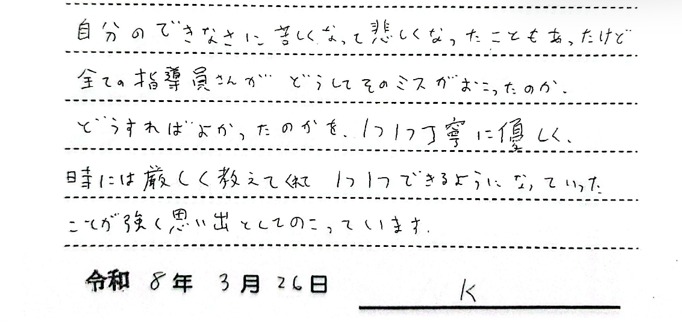 自分のできなさに苦しくなって悲しくなったこともあったけど
全ての指導員さんが どうしてそのミスがおこったのか、
どうすればよかったのかを、1つ1つ丁寧に優しく、
時には厳しく教えてくれて 1つ1つできるようになっていった
ことが強く思い出としてのこっています。
令和 8年 3月 26日 K